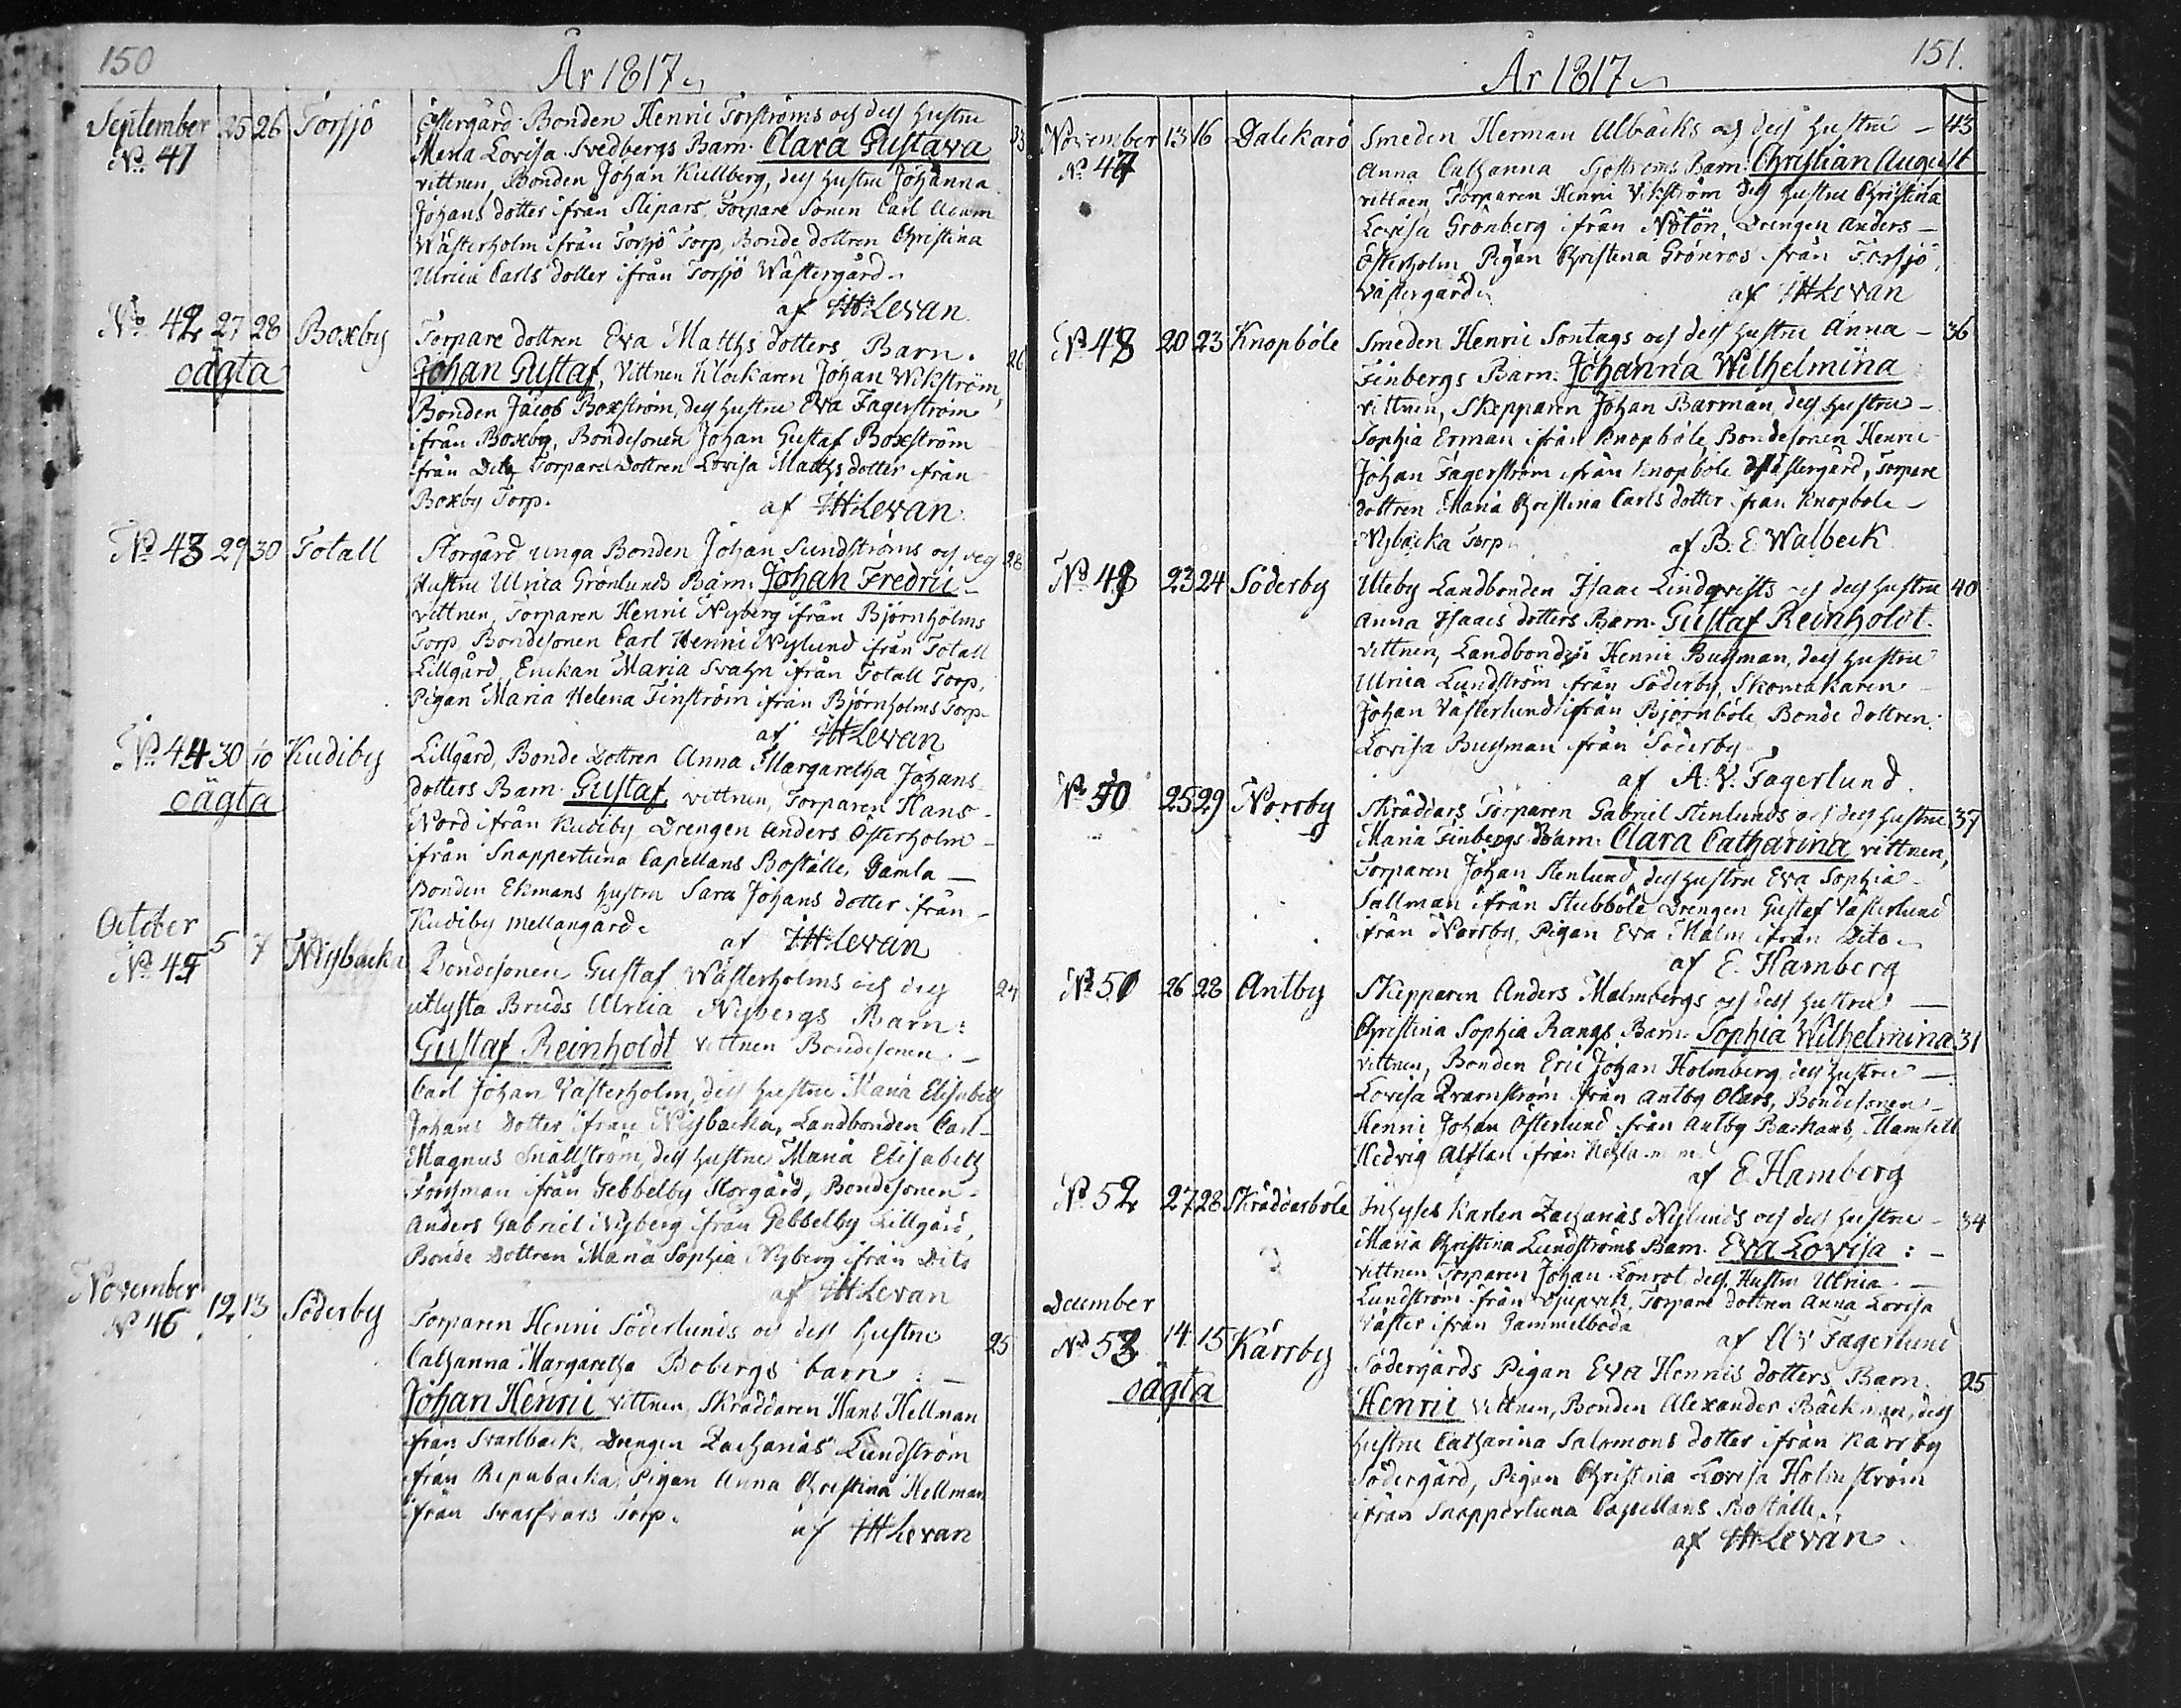 150
År 1817
September 25 26 Torsjö Östergård Bonden Henric Torströms och dess hustru
No 41 Maria Lovisa Svedbergs Barn. Clara Gustava 33
vittnen, Bonden Johan Kullberg, dess hustru Johanna
Johans dotter ifrån Slipars, Torpare Sonen Carl Adam
Wästerholm ifrån Torsjö Torp, Bonde dottren Christina
Ulrica Carls dotter ifrån Torsjö Wästergård.
af Levan
No 42 27 28 Boxby Torpare dottren Eva Matths dotters Barn.
oägta Johan Gustaf, Vittnen Klockaren Johan Wikström, 26
Bonden Jacob Boxström, dess hustru Eva Fagerström
ifrån Boxby, Bondesonen Johan Gustaf Boxström
från Dito Torpare Dottren Lovisa Matths dotter ifrån
Boxby Torp.
af Levan
No 43 29 30 Totall Storgård unga Bonden Johan Sundströms och dess 28
Hustru Ulrica Grönlunds Barn. Johan Fredric
vittnen, Torparen Henric Nyberg ifrån Björnholms
Torp, Bondesonen Carl Henric Nylund ifrån Totall
Lillgård, Enckan Maria Svahn ifrån Totall Torp,
Pigan Maria Helena Finström ifrån Björnholms Torp
af Levan
No 44 30 to Kudiby Lillgård, Bonde Dottren Anna Margaretha Johans
oägta dotters Barn Gustaf, vittnen, Torparen Hans
Nord ifrån Kudiby Drengen Anders Österholm
ifrån Snappertuna Capellans Boställe, Gamla
Bonden Ekmans hustru Sara Johans dotter ifrån
Kudiby mellangård.
af Levan
October
No 45 5 7 Nybacka Bondesonen Gustaf Wästerholms och dess 24
utlysta Bruds Ulrica Nybergs Barn:
Gustaf Reinholdt vittnen Bondesonen
Carl Johan Västerholm, dess hustru Maria Elisabeth
Johans Dotter ifrån Nybacka, Landbonden Carl
Magnus Snällström, dess hustru Maria Elisabeth
Forsman ifrån Gebbelby Storgård, Bondesonen
Anders Gabriel Nyberg ifrån Gebbelby Lillgård,
Bonde Dottren Maria Sophia Nyberg ifrån Dito
af Levan
November
No 46 12 13 Söderby Torparen Henric Söderlunds och dess hustru 25
Catharina Margaretha Bobergs barn:
Johan Henric vittnen, Skräddaren Hans Hellman
ifrån Svartback, Drengen Zacharias Lundström
ifrån Repubacka, Pigan Anna Christina Hellman
ifrån Torp.
af Levan
151.
År 1817
November 13 16 Dalekarö Smeden Herman Ulbäcks och dess hustru 43
No 47 Anna Catharina Sjöströms Barn: Christian August
vittnen, Torparen Henric Vikström dess hustru Christina
Lovisa Grönberg ifrån Nötön, Drengen Anders
Österholm Pigan Christina Grönros ifrån Torsjö
Västergård.
af Levan
No 48 20 23 Knopböle Smeden Henric Sontags och dess hustru Anna 36
Finbergs Barn: Johanna Wilhelmina
vittnen, Skepparen Johan Barman, dess hustru
Sophia Erman ifrån Knopböle, Bondesonen Henric
Johan Fagerström ifrån Knopböle Wästergård, Torpare
dottren Maria Christina Carls dotter ifrån Knopböle
Nybacka Torp.
af B. E. Walbeck
No 49 23 24 Söderby Uteby Landbonden Isaac Lindqvists och dess hustru 40
Anna Isaacs dotters Barn. Gustaf Reinholdt.
vittnen, Landbonden Henric Busman, dess hustru
Ulrica Lundström ifrån Söderby, Skomakaren
Johan Västerlund ifrån Björnböle, Bonde dottren
Lovisa Busman ifrån Söderby.
af A. V. Fagerlund.
No 50 25 29 Norrby Skräddars Torparen Gabriel Stenlunds och dess hustru 37
Maria Finbergs Barn. Clara Catharina vittnen,
Torparen Johan Stenlund, dess hustru Eva Sophia
Sallman ifrån Stubböle Drengen Gustaf Västerlund
ifrån Norrby, Pigan Eva Malm ifrån Dito.
af E. Hamberg
No 51 26 28 Antby Skepparen Anders Malmbergs och dess hustru
Christina Sophia Rangs Barn. Sophia Wilhelmina 31
vittnen, Bonden Eric Johan Holmberg, dess hustru
Lovisa Qvarnström ifrån Antby Olars, Bondesonen
Henric Johan Österlund ifrån Antby Backans, Mamsell
Hedvig Alftan ifrån
af E. Hamberg
No 52 27 28 Skräddarböle Inhyses Karlen Zacharias Nylunds och dess hustru 34
Maria Christina Lundströms Barn. Eva Lovisa:
vittnen Torparen Johan Lönrot dess Hustru Ulrica
Lundström ifrån Djupvik, Torpare dottren Anna Lovisa
Väster ifrån Gammelboda
af A V Fagerlund
December
No 53 14 15 Kärrby Södergårds Pigan Eva Henrics dotters Barn 25
oägta Henric vittnen, Bonden Alexander Bäckman, dess
hustru Catharina Salomons dotter ifrån Kärrby
Södergård, Pigan Christina Lovisa Holmström
ifrån Snappertuna Capellans Boställe.
af Levan